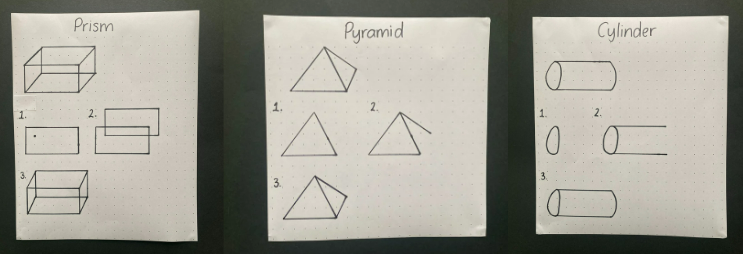 Prism
1.
2.
3.
Pyramid
1.
2.
3.
Cylinder
1.
2.
3.